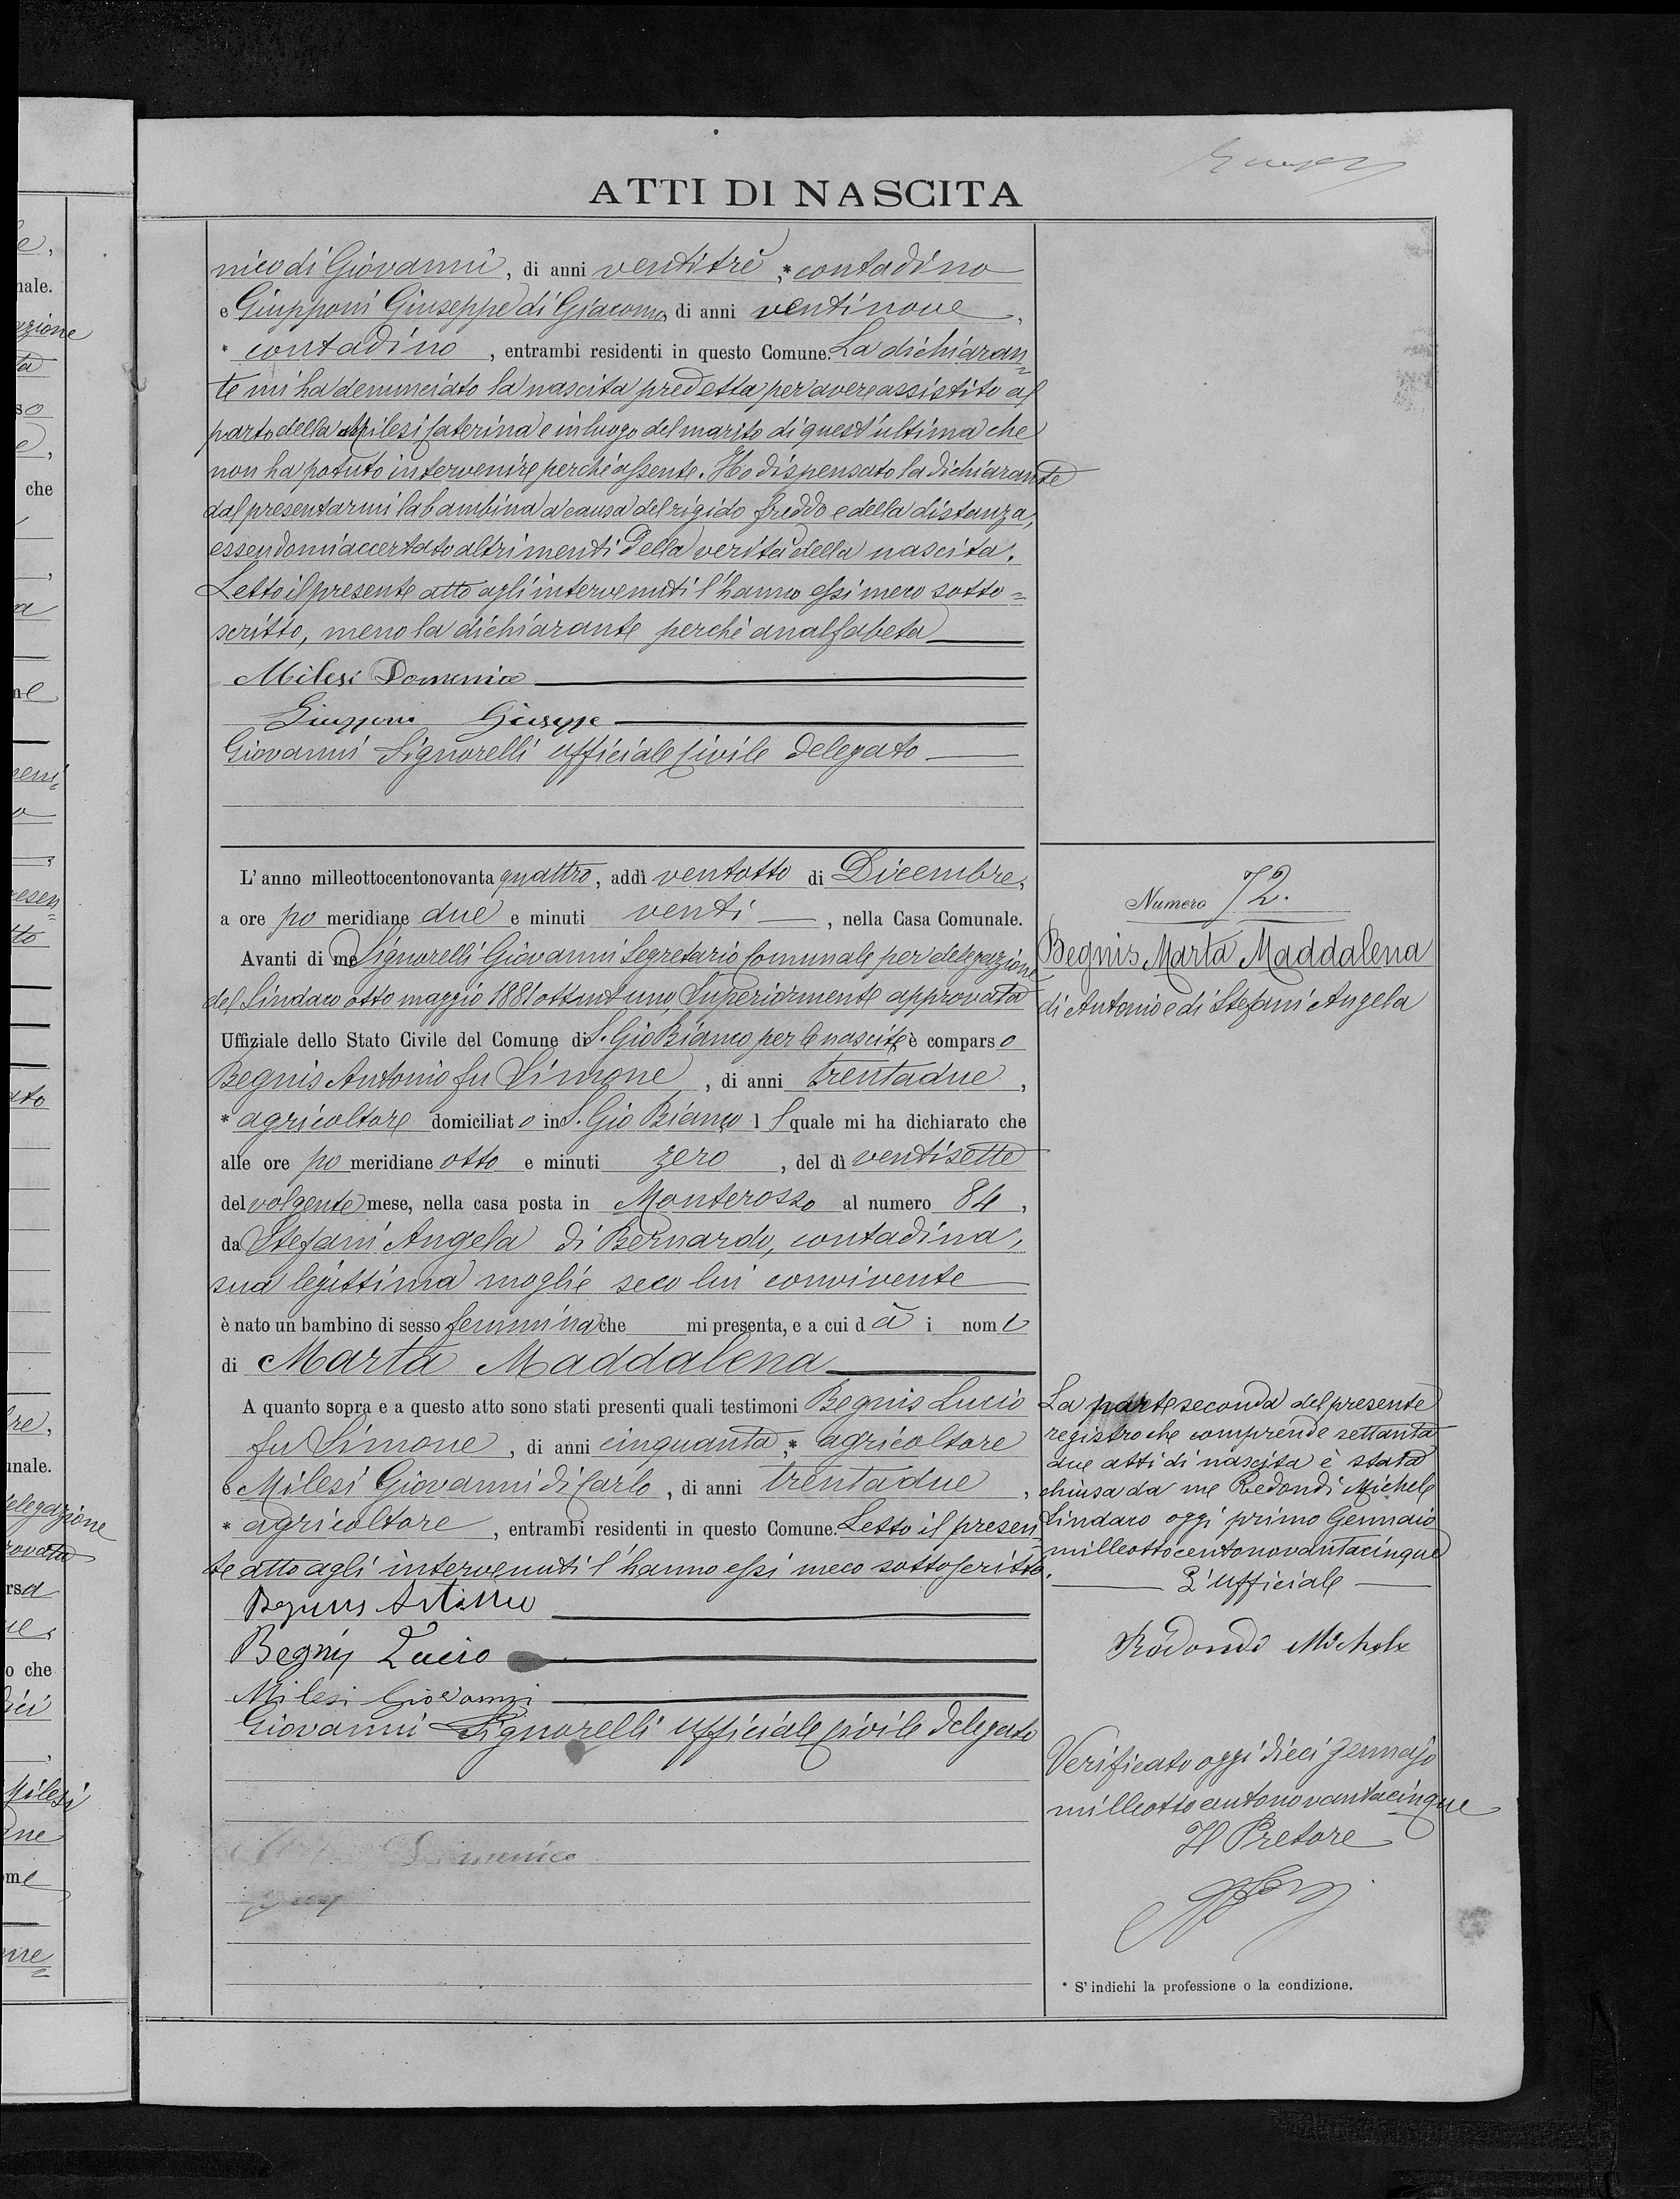 ATTI DI NASCITA
nico di Giovanni, di anni ventitrè, * contadino
e Giupponi Giuseppe di Giacomo, di anni ventinove,
* contadino, entrambi residenti in questo Comune. La dichiaran=
te mi ha denunciato la nascita predetta per avere assistito al
parto della Milesi Caterina e in luogo del marito di quest'ultima che
non ha potuto intervenire perchè assente. Ho dispensato la dichiarante
dal presentarmi la bambina a causa del rigido freddo e della distanza,
essendomi accertato altrimenti della verità della nascita.
Letto il presente atto agli intervenuti l'hanno essi meco sotto=
scritto, meno la dichiarante perchè analfabeta
Milesi Domenico
Giupponi Giuseppe
Giovanni Signorelli ufficiale civile delegato
L'anno milleottocentonovanta quattro, addì ventotto di Dicembre,
a ore po meridiane due e minuti venti, nella Casa Comunale.
Avanti di me Signorelli Giovanni Segretario Comunale per delegazione
del Sindaco otto maggio 1881 ottantuno, Superiormente approvata
Uffiziale dello Stato Civile del Comune di S. Gio Bianco per le nascite è comparso
Begnis Antonio fu Simone, di anni trentadue,
* agricoltore domiciliato in S. Gio Bianco l l quale mi ha dichiarato che
alle ore po meridiane otto e minuti zero, del dì ventisette
del volgente mese, nella casa posta in Monterosso al numero 84,
da Stefani Angela di Bernardo, contadina,
sua legittima moglie seco lui convivente
è nato un bambino di sesso femmina che mi presenta, e a cui dà i nomi
di Marta Maddalena
A quanto sopra e a questo atto sono stati presenti quali testimoni Begnis Lucio
fu Simone, di anni cinquanta, * agricoltore
e Milesi Giovanni di Carlo, di anni trentadue,
* agricoltore, entrambi residenti in questo Comune. Letto il presen=
te atto agli intervenuti l'hanno essi meco sottoscritto.
Begnis Antonio
Begnis Lucio
Milesi Giovanni
Giovanni Signorelli ufficiale civile delegato
Domenico
Numero 72.
Begnis Marta Maddalena
di Antonio e di Stefani Angela
La parte seconda del presente
registro che comprende settanta
due atti di nascita è stata
chiusa da me Redondi Michele
Sindaco oggi primo Gennaio
milleottocentonovantacinque
L'ufficiale
Redondi Michele
Verificato oggi dieci gennajo
milleottocentonovantacinque
Il Pretore
* S'indichi la professione o la condizione.